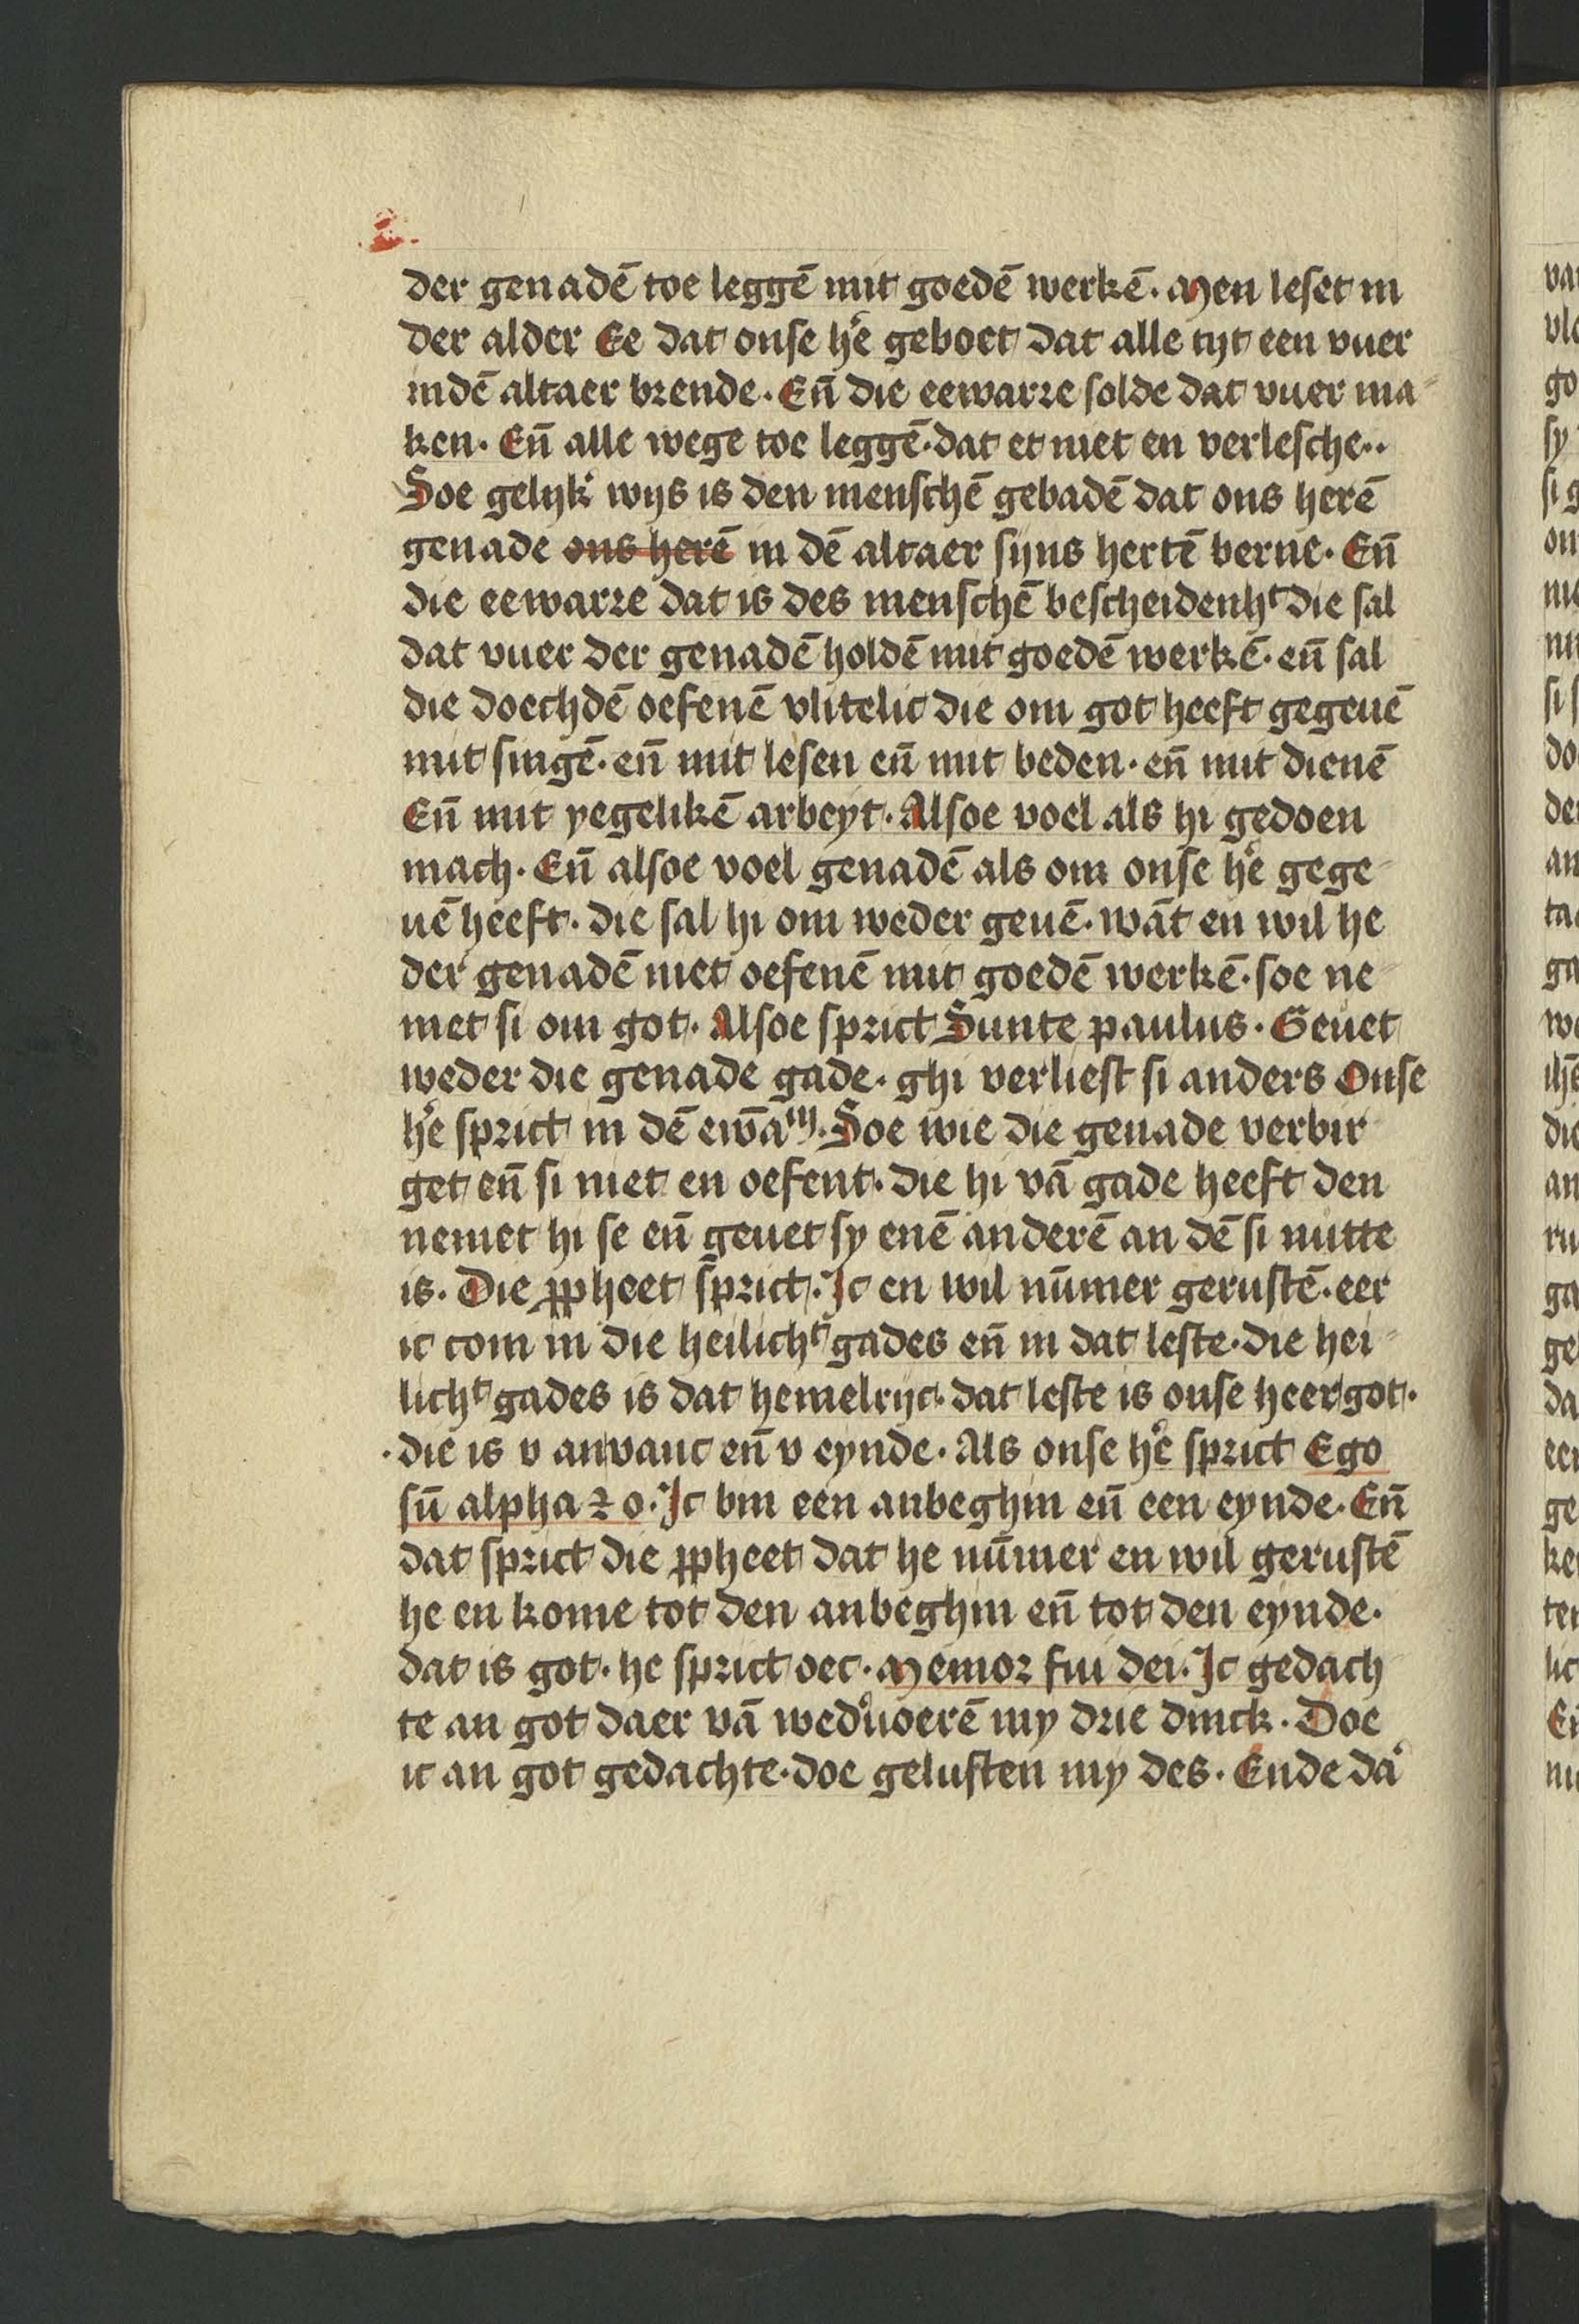 der genadē toe leggē mit goedē werkē. Men leset in
der alder Ee dat onse he͛ geboet dat alle tijt een vuer
indē altaer brende. Eñ die eewarre solde dat vuer ma
ken. Eñ alle wege toe leggē. dat et niet en verlesche..
Soe gelijk͛ wijs is den menschē gebadē dat ons herē
genade ons herē in dē altaer sijns hertē berne. Eñ
die eewarre dat is des menschē bescheidenhᵗ die sal
dat vuer der genadē holdē mit goedē werkē. eñ sal
die doechdē oefenē vlitelic die om got heeft gegeuē
mit singē. eñ mit lesen eñ mit beden. eñ mit dienē
Eñ mit yegelikē arbeyt. Alsoe voel als hi gedoen
mach. Eñ alsoe voel genadē als om onse he͛ gege
uē heeft. die sal hi om weder geuē. wāt en wil he
der genadē niet oefenē mit goedē werkē. soe ne
met si om got. Alsoe sprict Sunte paulus. Geuet
weder die genade gade. ghi verliest si anders Onse
he͛ sprict in dē ewāᵐ. Soe wie die genade verbir
get eñ si niet en oefent. die hi vā gade heeft den
nemet hi se eñ geuet sy enē anderē an dē si nutte
is. Die ꝓpheet sprict. Ic en wil nūmer gerustē. eer
ic com in die heilichᵗ gades eñ in dat leste. die hei
lichᵗ gades is dat hemelrijc. dat leste is onse heer got.
die is v anvanc eñ v eynde. Als onse he͛ sprict Ego
sū alpha ⁊ o. Ic bin een anbeghin eñ een eynde. Eñ
dat sprict die ꝓpheet dat he nūmer en wil gerustē
he en kome tot den anbeghin eñ tot den eynde.
dat is got. he sprict oec. Memor fui dei. Ic gedach
te an got daer vā wed͛uoerē my drie dinck. Doe
ic an got gedachte. doe gelusten my des. Ende da͛